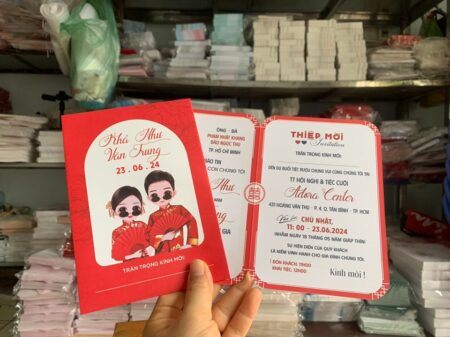 Nhã Như
Văn Trung
23 . 06 . 24
TRÂN TRỌNG KÍNH MỜI
ÔNG - BÀ
PHẠM NHẬT KHANG
ĐÀO NGỌC THU
TP. HỒ CHÍ MINH
BÁO TIN
CON CHÚNG TÔI
Như
GIA
THIỆP MỜI
Invitation
TRÂN TRỌNG KÍNH MỜI:
ĐẾN DỰ BUỔI TIỆC RƯỢU CHUNG VUI CÙNG CHÚNG TÔI TẠI
TT HỘI NGHỊ & TIỆC CƯỚI
Adora Center
431 HOÀNG VĂN THỤ - P. 4, Q. TÂN BÌNH - TP. HCM
Vào lúc CHỦ NHẬT,
11: 00 - 23.06.2024
(NHẰM NGÀY 18 THÁNG 05 NĂM GIÁP THÌN)
SỰ HIỆN DIỆN CỦA QUÝ KHÁCH
LÀ NIỀM VINH HẠNH CHO GIA ĐÌNH CHÚNG TÔI.
ĐÓN KHÁCH: 11H00
KHAI TIỆC: 12H00
Kính mời !